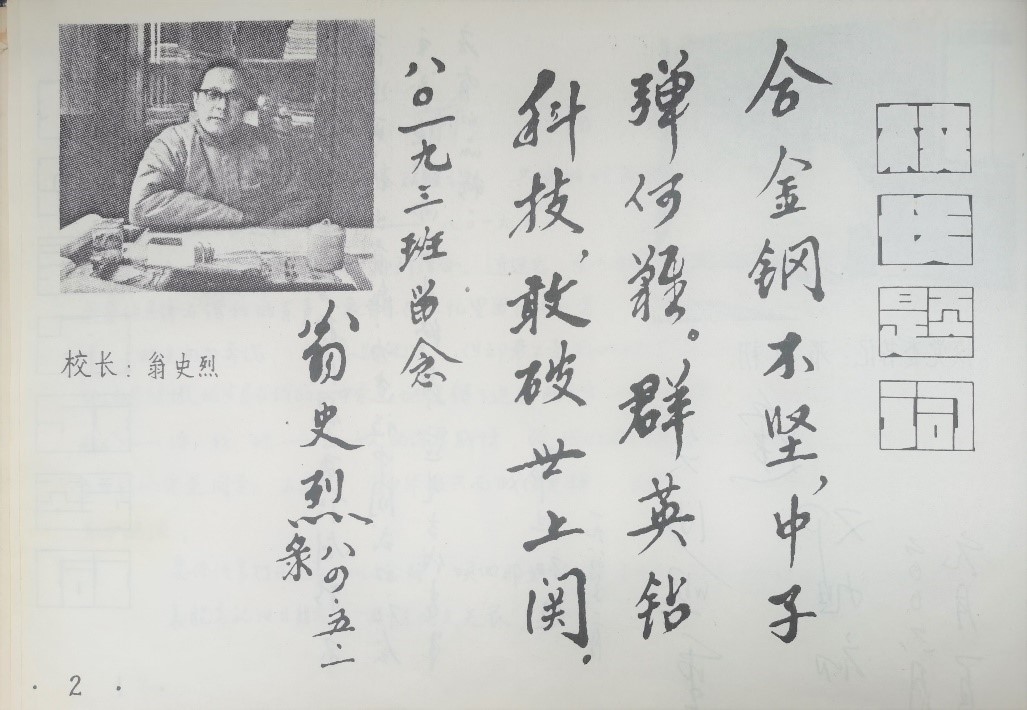 校长题词
合金钢不坚，中子
弹何难。群英钻
科技，敢破世上关.
八〇一九三班留念
翁史烈
八四.五.二
校长：翁史烈
· 2 ·